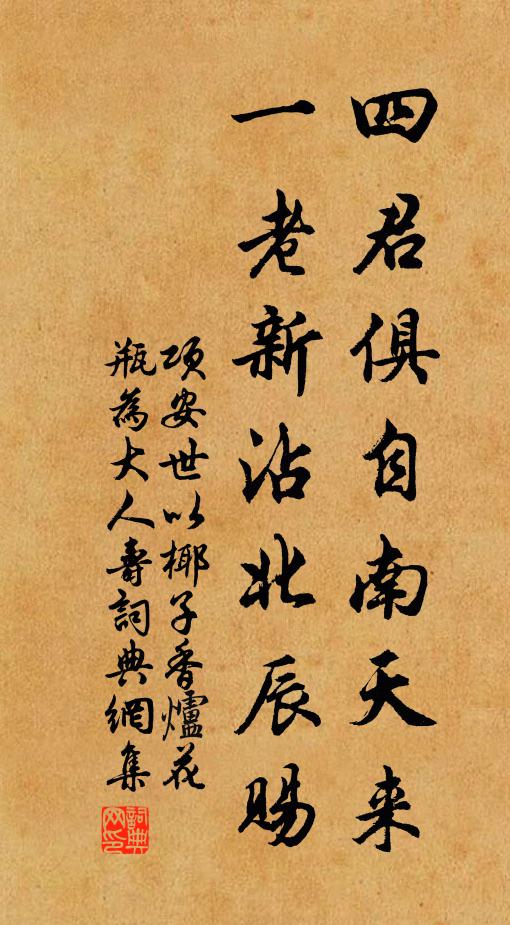 四君俱自南天来
一老新沾北辰賜
项安世以椰子香爐花
瓶為大人壽詞典網集
詞典网印